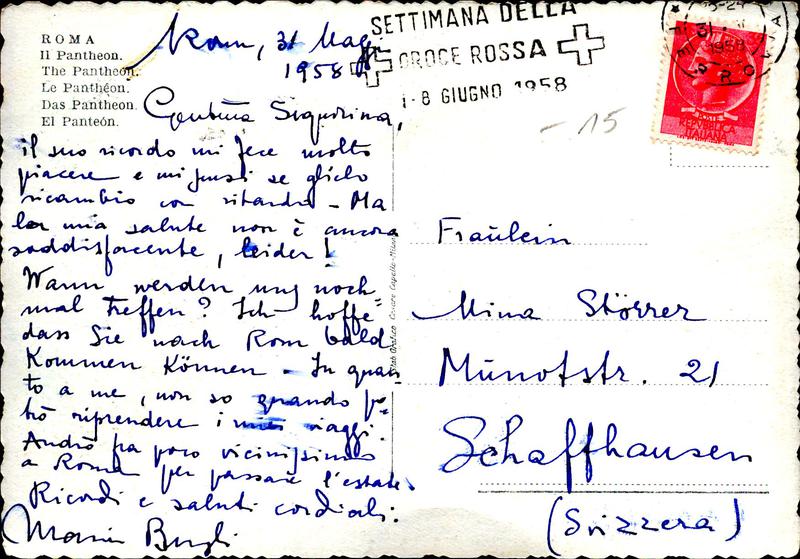 ROMA
Il Pantheon.
The Pantheon.
Le Panthéon.
Das Pantheon.
El Panteón.
Rom, 31 Mag.
1958
SETTIMANA DELLA
CROCE ROSSA
1-8 GIUGNO 1958
POSTE
REPUBBLICA
ITALIANA
- 15
Gentma Signorina,
il suo ricordo mi fece molto
piacere e mi scusi se glielo
ricambio con ritardo - Ma
la mia salute non è ancora
soddisfacente, leider!
Wann werden uns noch
mal treffen? Ich hoffe
dass Sie nach Rom bald
kommen können - In quan-
to a me, non so quando po-
trò riprendere i miei viaggi.
Andrò fra poco vicinissimo
a Roma per passare l'estate.
Ricordi e saluti cordiali:
Fraülein
Mina Störrer
Münotstr. 21
Schaffhausen
(Svizzera)